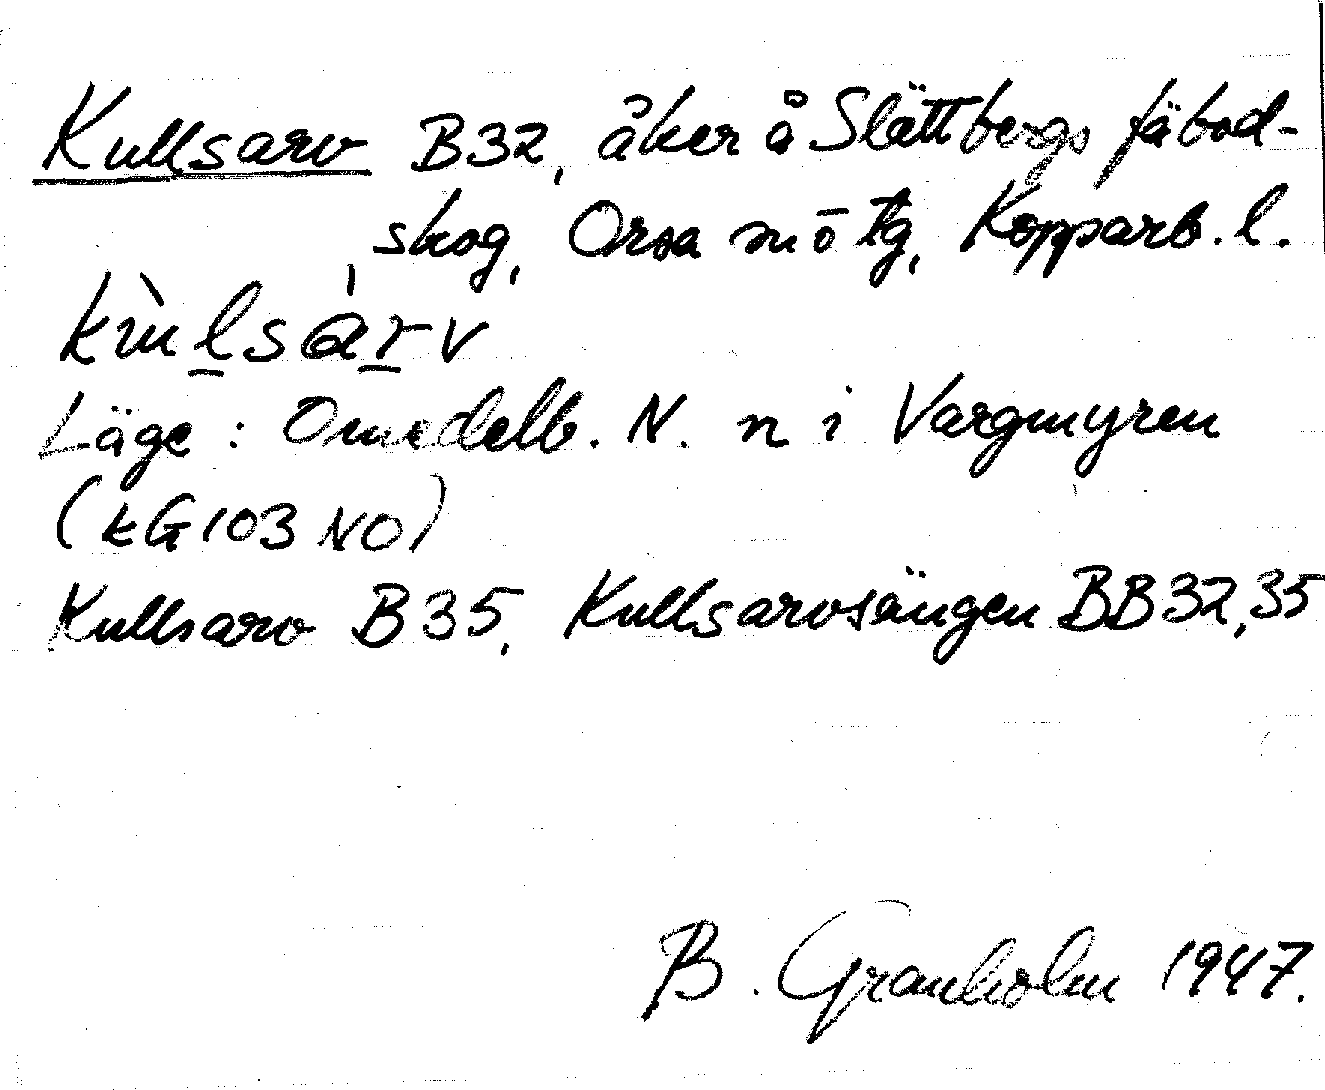 Kullsarv B32, åker å Slättbergs fäbod-
skog, Orsa sn ō tg, Kopparb. l.
Läge: Omedelb. N. n i Vargmyren
(kG103 NO)
Kullsarv B35, Kullsarvsängen BB32,35
B. Granholm 1947.